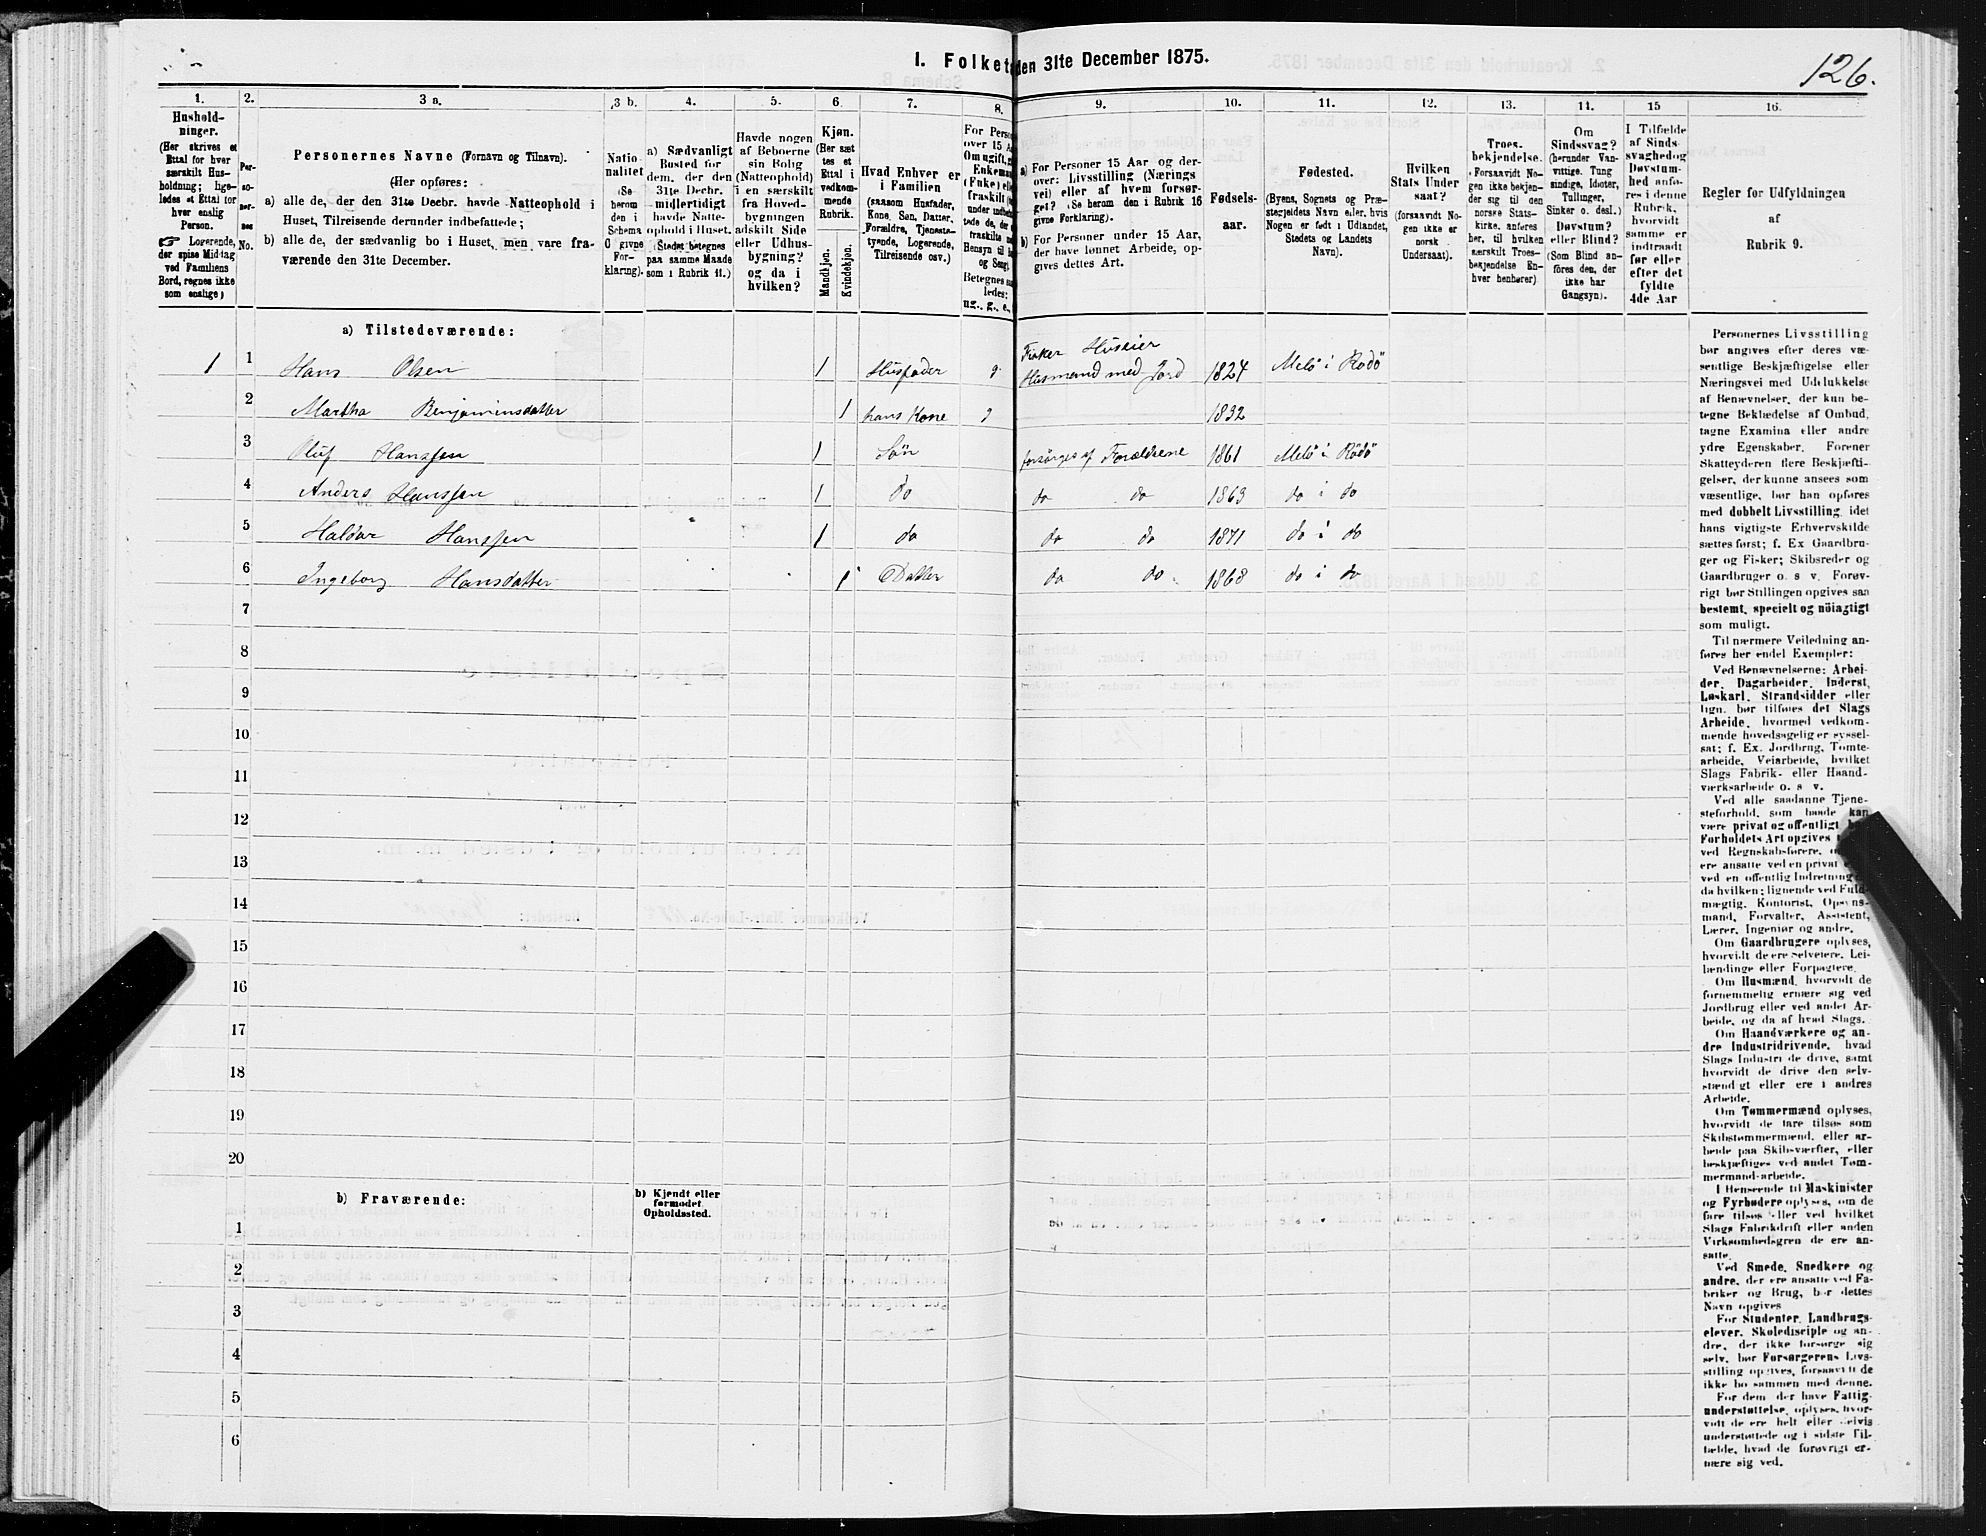 1. Folket den 31te December 1875.
126.
1. 2. 3 a. 3 b. 4. 5. 6. 7. 8. 9. 10. 11. 12. 13. 14. 15 16.
Hushold-
ninger.
(Her skrives et
Ettal for hver
særskilt Hus-
holdning; lige-
ledes et Ettal for
hver enslig
Person.
☞ Logerende,
der spise Middag
ved Familiens
Bord, regnes ikke
som enslige)
Per-
so-
ner-
nes
No.
Personernes Navne (Fornavn og Tilnavn).
(Her opføres:
a) alle de, der den 31te Decbr. havde Natteophold i
Huset, Tilreisende derunder indbefattede;
b) alle de, der sædvanlig bo i Huset, men vare fra-
værende den 31te December.
Natio-
nalitet
(Se
herom
den i
Schema
C givne
For-
klaring).
a) Sædvanligt
Bosted for
dem, der den
31te Decbr.
midlertidigt
havde Natte-
ophold i Huset.
(Stedet betegnes
paa samme Maade
som i Rubrik 11.)
Havde nogen
af Beboerne
sin Bolig
(Natteophold)
i en særskilt
fra Hoved-
bygningen
adskilt Side
eller Udhus-
bygning?
og da i
hvilken?
Kjøn.
(Her sæt
tes et
Ettal i
vedkom-
mende
Rubrik.
Mandkjøn.
Kvindekjøn.
Hvad Enhver er
i Familien
(saasom Husfader,
Kone, Søn, Datter,
Forældre, Tjeneste-
tyende, Logerende,
Tilreisende osv.)
For Perso
over 15 A
Om ugift, g
Enkeman
(Enke) ell
fraskilt (
under indbe
tede de, der
fraskilte
Hensyn til
og Seng)
Betegnes
ledes:
ug., g., e.,
a) For Personer 15 Aar og der-
over: Livsstilling (Nærings
vei) eller af hvem forsør-
get? (Se herom den i Rubrik 16
givne Forklaring).
b) For Personer under 15 Aar,
der have lønnet Arbeide, op-
gives dettes Art.
Fødsels-
aar.
Fødested.
(Byens, Sognets og Præ-
stegjeldets Navn eller, hvis
Nogen er født i Udlandet,
Stedets og Landets
Navn).
Hvilken
Stats Under
saat?
(forsaavidt No-
gen ikke er
norsk
Undersaat).
Troes-
bekjendelse.
(Forsaavidt No
gen ikke bekjen-
der sig til den
norske Stats-
kirke, anføres
her, til hvilken
særskilt Troes-
bekjendelse En-
hver henhører)
Om
Sindssvag?
(herunder Van-
vittige, Tung
sindige, Idioter,
Tullinger,
Sinker o. desl.)
Døvstum?
eller Blind?
(Som Blind an-
føres den, der
ikke har
Gangsyn).
I Tilfælde
af Sinds-
svaghed og
Døvstum-
hed anfø-
res i denne
Rubrik,
hvorvidt
samme er
indtraadt
før eller
efter det
fyldte
4de Aar
Regler for Udfyldningen
af
Rubrik 9.
a) Tilstedeværende:
1 1 Hans Olsen 1 Husfader g Fisker Huseier Husmand med Jord 1824 Melö i Rödö
2 Martha Benjaminsdatter 1 hans Kone g 1832
3 Oluf Hanssen 1 Sön forsörges af Forældrene 1861 Melö i Rödö
4 Anders Hanssen 1 do do do 1863 do i do
5 Haldor Hanssen 1 do do do 1871 do i do
6 Ingeborg Hansdatter 1 Datter do do 1868 do i do
7
8
9
10
11
12
13
14
15
16
17
18
19
20
b) Fraværende:
b) Kjendt eller
formodet
Opholdssted.
1
2
3
4
5
6
Personernes Livsstilling
bør angives efter deres væ-
sentlige Beskjæftigelse eller
Næringsvei med Udelukkelse
af Benævnelser, der kun be-
tegne Beklædelse af Ombud,
tagne Examina eller andre
ydre Egenskaber. Forener
Skatteyderen flere Beskjæfti-
gelser, der kunne ansees som
væsentlige, bør han opføres
med dobbelt Livsstilling, idet
hans vigtigste Erhvervskilde
sættes først; f. Ex Gaardbru-
ger og Fisker; Skibsreder og
Gaardbruger o. s v. Forøv-
rigt bør Stillingen opgives saa
bestemt, specielt og nöiagtigt
som muligt.
Til nærmere Veiledning an-
føres her endel Exempler:
Ved Benævnelserne: Arbei-
der, Dagarbeider, Inderst,
Løskarl, Strandsidder eller
lign. bør tilføies det Slags
Arbeide, hvormed vedkom-
mende hovedsagelig er syssel-
sat; f. Ex. Jordbrug, Tomte-
arbeide, Veiarbeide, hvilket
Slags Fabrik- eller Haand-
værksarbeide o. s v.
Ved alle saadanne Tjene-
steforhold, som baade kan
være privat og offentligt, bør
Forholdets Art opgives
ved Regnskabsførere,
ere ansatte ved en privat
ved en offentlig Indretning
da hvilken; lignende ved Fuld-
mægtig, Kontorist, Opsyns-
mand, Forvalter, Assistent,
Lærer, Ingeniør og andre.
Om Gaardbrugere oplyses,
hvorvidt de ere Selveiere, Lei-
lændinge eller Forpagtere.
Om Husmænd, hvorvidt de
fornemmelig ernære sig ved
Jordbrug eller ved andet Ar-
beide, og da af hvad Slags.
Om Haandværkere og an-
dre Industridrivende, hvad
Slags Industri de drive, samt
hvorvidt de drive den selv-
stændigt eller ere i andres
Arbeide.
Om Tømmermænd oplyses,
hvorvidt de fare tilsøs som
Skibstømmermænd, eller ar-
beide paa Skibsværfter, eller
beskjæftiges ved andet Tøm-
mermand-arbeide.
I Henseende til Maskinister
og Fyrbødere oplyses, om de
fare tilsøs eller ved hvilket
Slags Fabrikdrift eller anden
Virksomhedsgren de ere an-
satte.
Ved Smede, Snedkere og
andre, der ere ansatte ved Fa-
briker og Brug, bør dettes
Navn opgives
For Studenter, Landbrugs-
elever, Skoledisciple og an-
dre, der ikke forsørge sig
selv, bør Forsørgerens Livs-
stilling opgives, forsaavidt de
ikke bo sammen med denne.
For dem, der have Fattig-
understøttelse, oplyses, hvor-
vidt de ere helt eller delvis
understøttede og i sidste Til-
fælde, hvad de forøvrigt er-
nære sig ved.